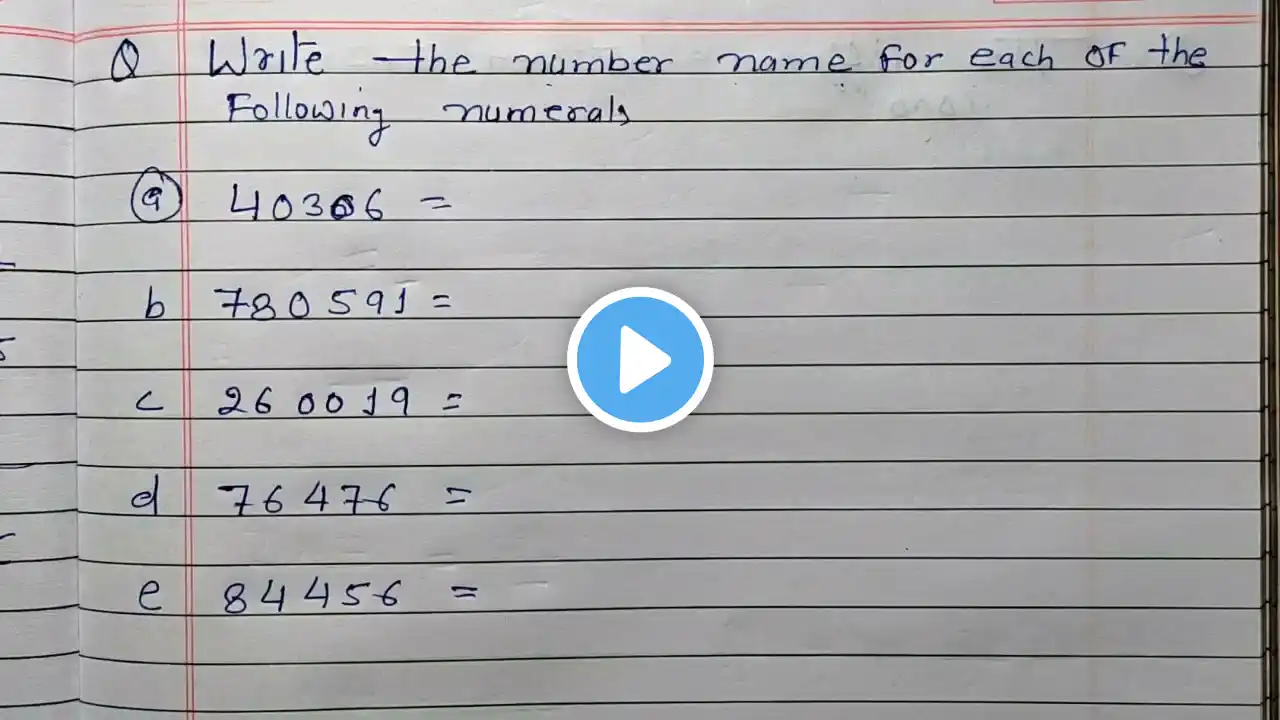 Q Write the number name for each of the
Following numerals
a 40306 =
b 780591 =
c 260019 =
d 76476 =
e 84456 =